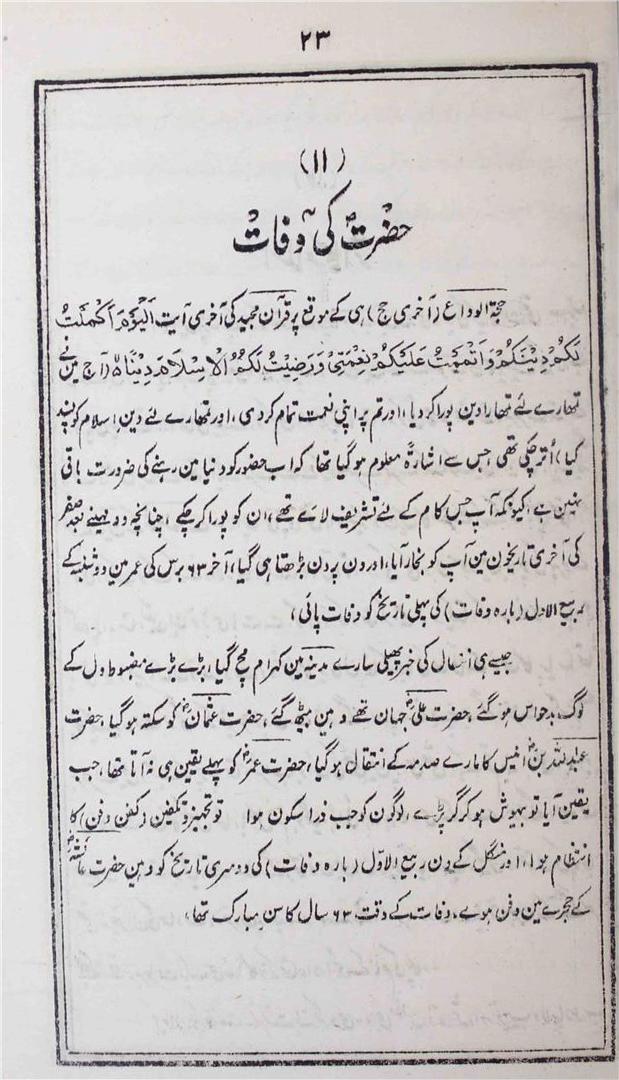 ۲۳
(۱۱)
حضرتؐ کی وفات
حجۃ الوداع (آخری حج) ہی کے موقع پر قرآن مجید کی آخری آیت اَلْیَوْمَ اَکْمَلْتُ
لَکُمْ دِیْنَکُمْ وَاَتْمَمْتُ عَلَیْکُمْ نِعْمَتِیْ وَرَضِیْتُ لَکُمُ الْاِسْلَامَ دِیْنًا (آج مین نے
تمھارے لئے تمھارا دین پورا کر دیا، اور تم پر اپنی نعمت تمام کر دی، اور تمھارے لئے دین اسلام کو پسند
کیا) اُتر چکی تھی جس سے اشارۃً معلوم ہو گیا تھا کہ اب حضور کو دنیا مین رہنے کی ضرورت باقی
نہین ہے، کیونکہ آپ جس کام کے لئے تشریف لائے تھے، ان کو پورا کر چکے، چنانچہ دو مہینے بعد صفر
کی آخری تاریخون مین آپ کو بخار آیا، اور دن پر دن بڑھتا ہی گیا، آخر ۶۳ برس کی عمر مین دوشنبہ کے
ربیع الاول (بارہ وفات) کی پہلی تاریخ کو وفات پائی،
جیسے ہی انتقال کی خبر پھیلی سارے مدینہ مین کہرام مچ گیا، بڑے بڑے مضبوط دل کے
لوگ بدحواس ہو گئے، حضرت علیؓ جہان تھے وہین بیٹھ گئے، حضرت عثمانؓ کو سکتہ ہو گیا، حضرت
عبداللہ بنؓ انیس کا مارے صدمہ کے انتقال ہو گیا، حضرت عمرؓ کو پہلے یقین ہی نہ آتا تھا، جب
یقین آیا تو بیہوش ہو کر گر پڑے، لوگون کو جب ذرا سکون ہوا تو تجہیز و تکفین (کفن دفن) کا
انتظام ہوا، اور منگل کے دن ربیع الاوّل (بارہ وفات) کی دوسری تاریخ کو وہین حضرت عائشہؓ
کے حجرے مین دفن ہوے، وفات کے وقت ۶۳ سال کا سن مبارک تھا،